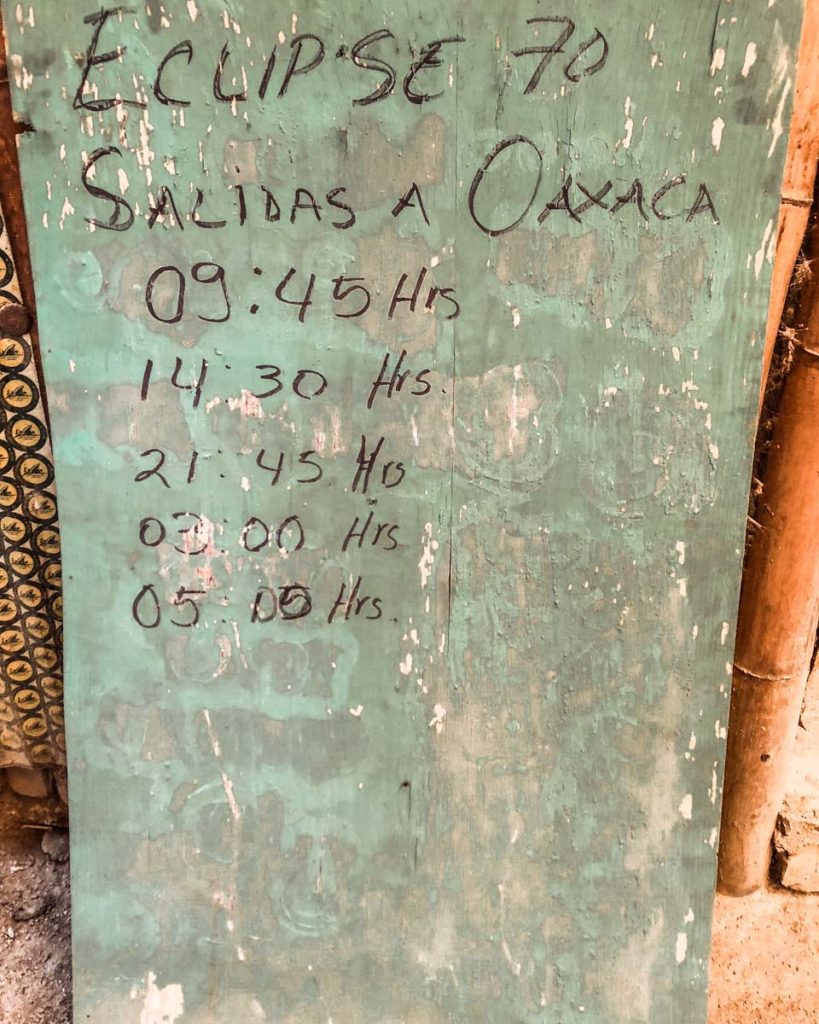 ECLIPSE 70
SALIDAS A OAXACA
09:45 Hrs
14:30 Hrs.
21:45 Hrs
03:00 Hrs
05:05 Hrs.